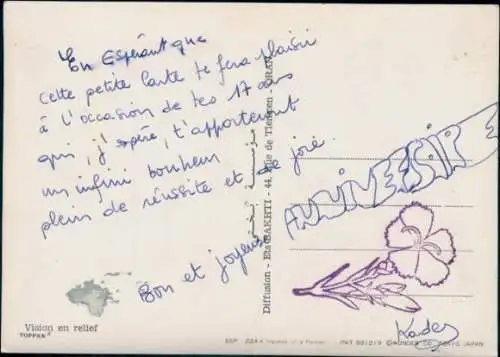 En Espérant que
Cette petite Carte te fera plaisir
à l'occasion de tes 17 ans
qui, j'espère, t'apporteront
un infini bonheur
plein de réussite et de joie.
Bon et joyeux
ANNIVERSAIRE
Kades
Diffusion - Ets BAKHTI - 44, Rue de Tlemcen - ORAN
Vision en relief
TOPPAN